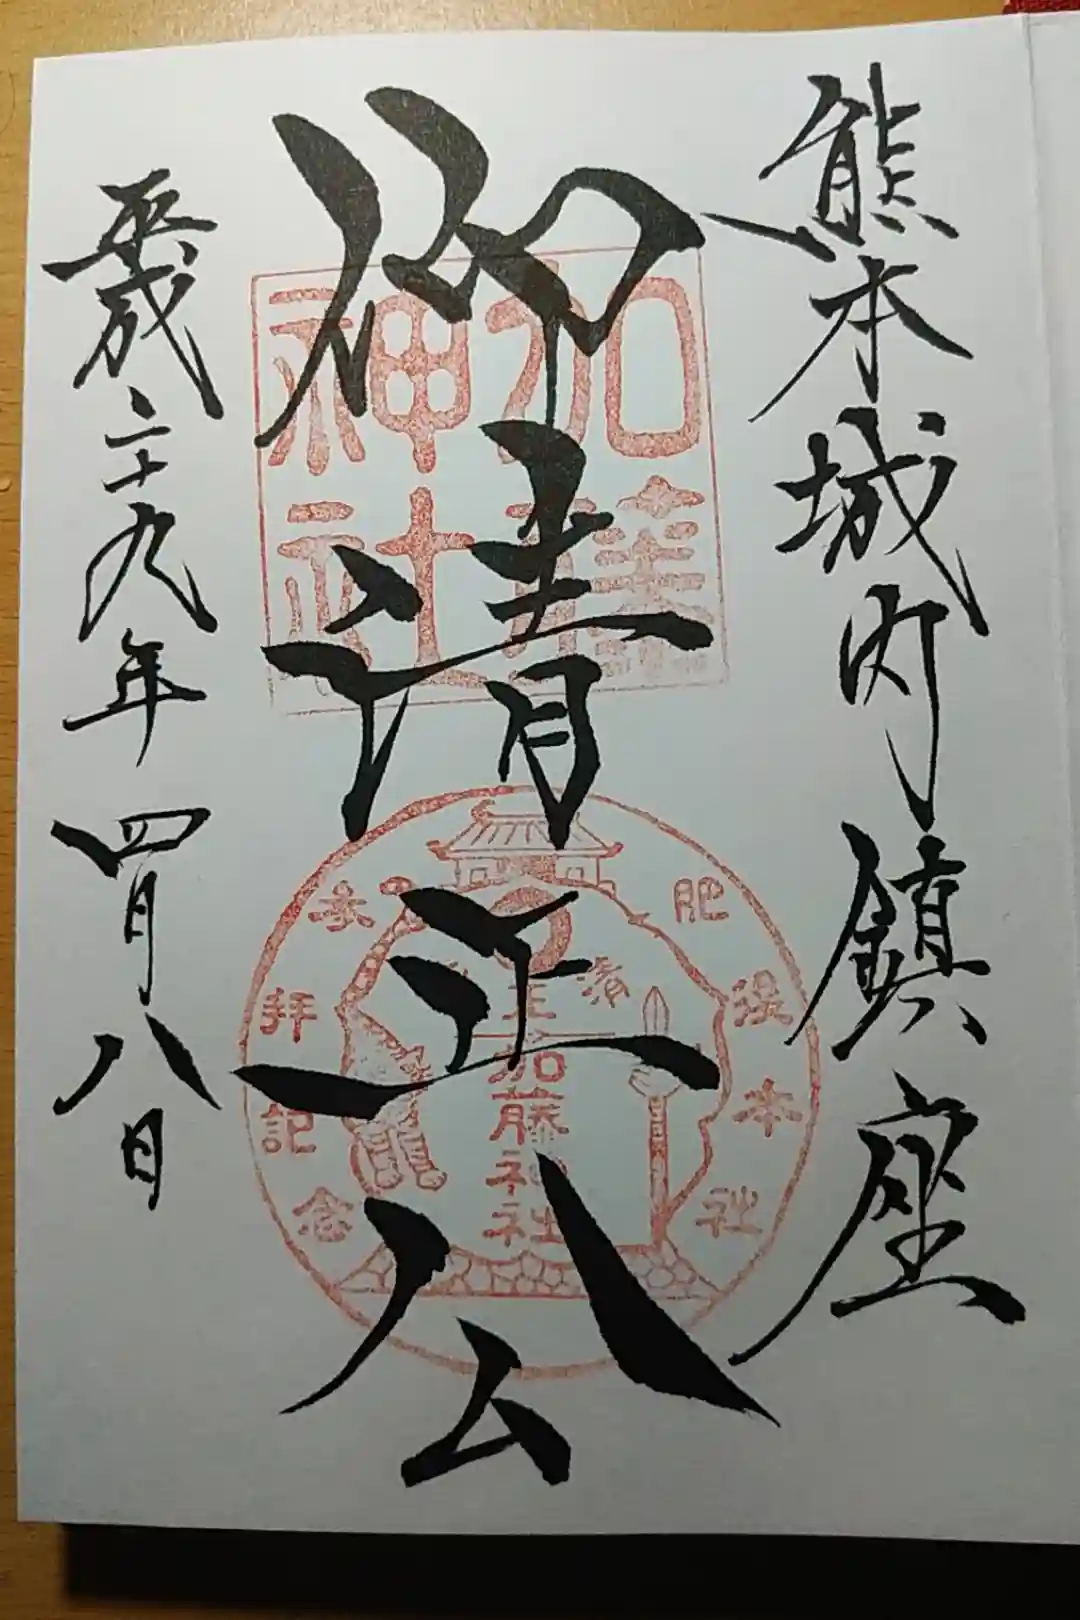 熊本城内鎮座
御清正公
平成二十九年四月八日
加藤神社
肥後本社
参拝記念
清正公
加藤神社